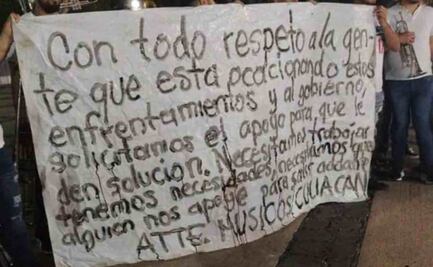 Con todo respeto a la gen-
te que esta pcocionando estos
enfrentamientos y al gobierno,
solicitamos el apoyo para que le
den solucion. Necesitamos trabajar
tenemos necesidades, necesitamos que
alguien nos apoye para salir addante
ATTE. MUSICOS CULIACAN